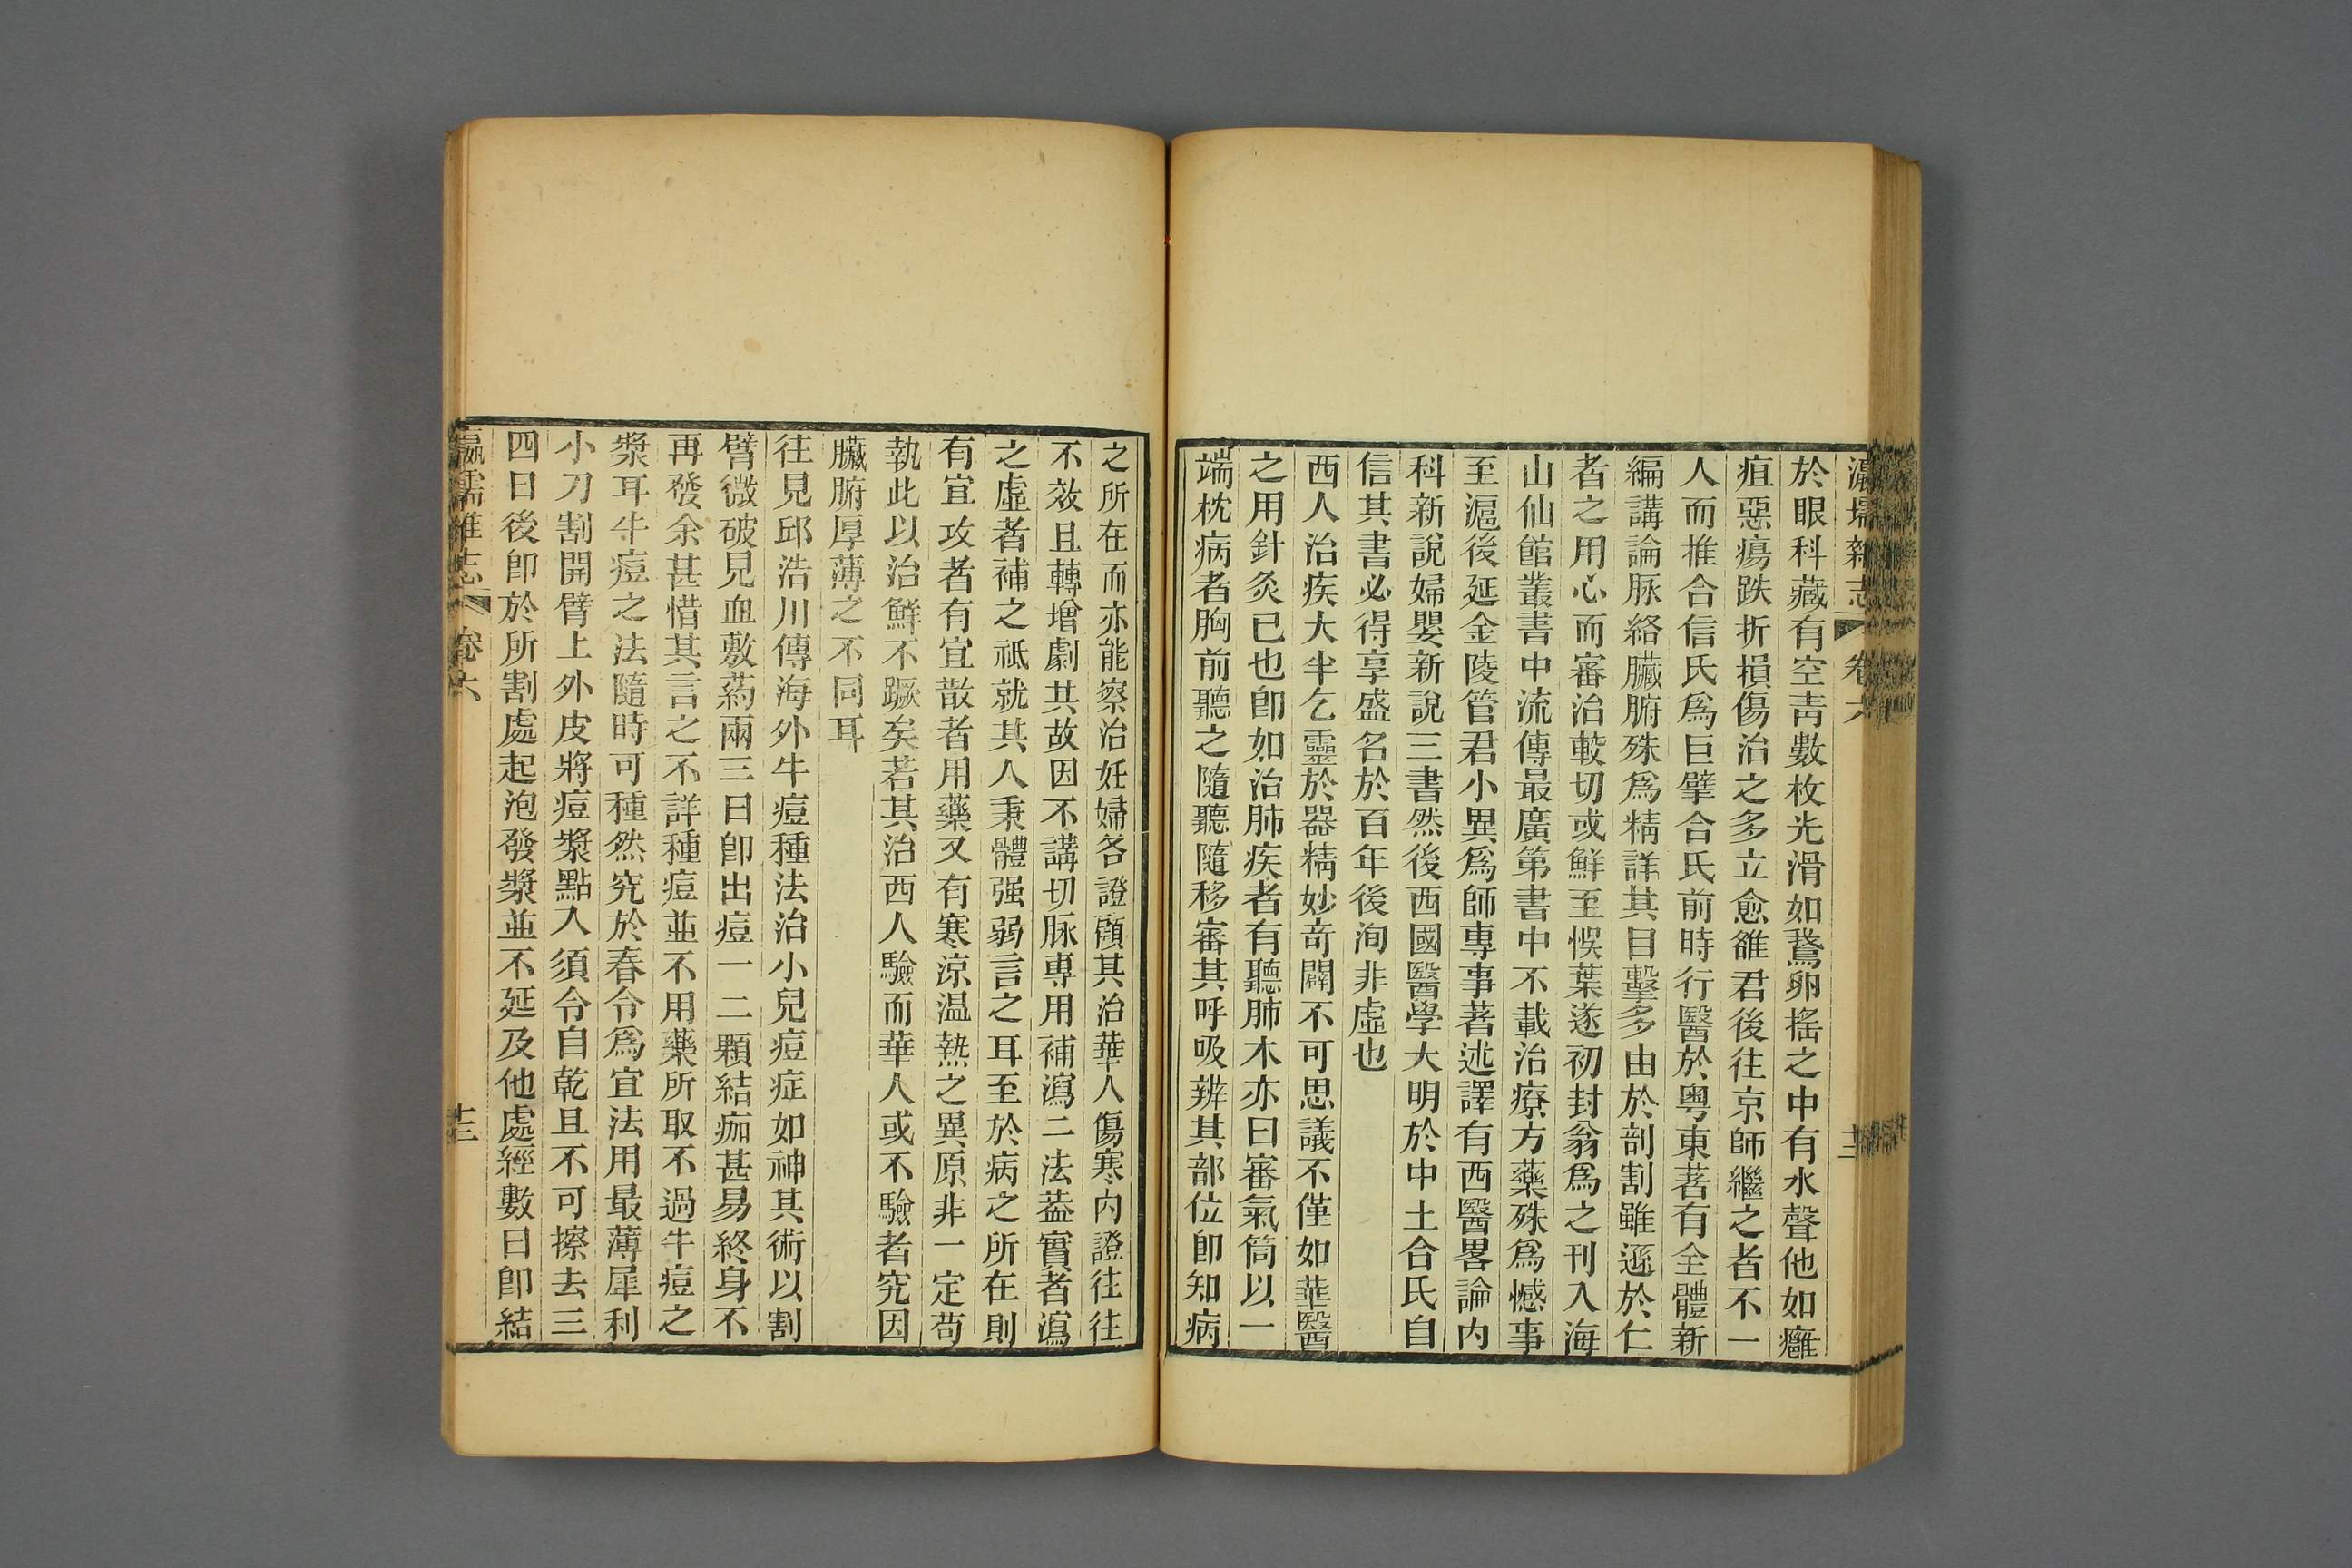 瀛壖雜志 卷六 十二
於眼科藏有空靑數枚光滑如鵞卵搖之中有水聲他如癰
疽惡瘍跌折損傷治之多立愈雒君後往京師繼之者不一
人而推合信氏爲巨擘合氏前時行醫於粵東著有全體新
編講論脈絡臟腑殊爲精詳其目擊多由於剖割雖遜於仁
者之用心而審治較切或鮮至悞葉遂初封翁爲之刊入海
山仙館叢書中流傳最廣第書中不載治療方藥殊爲憾事
至滬後延金陵管君小異爲師專事著述譯有西醫畧論內
科新說婦嬰新說三書然後西國醫學大明於中土合氏自
信其書必得享盛名於百年後洵非虛也
西人治疾大半乞靈於器精妙奇闢不可思議不僅如華醫
之用針灸已也卽如治肺疾者有聽肺木亦曰審氣筒以一
端枕病者胸前聽之隨聽隨移審其呼吸辨其部位卽知病
之所在而亦能察治妊婦各證顧其治華人傷寒內證往往
不效且轉增劇其故因不講切脈專用補瀉二法葢實者瀉
之虛者補之祇就其人秉體强弱言之耳至於病之所在則
有宜攻者有宜散者用藥又有寒涼温熱之異原非一定苟
執此以治鮮不蹶矣若其治西人驗而華人或不驗者究因
臟腑厚薄之不同耳
往見邱浩川傳海外牛痘種法治小兒痘症如神其術以割
臂微破見血敷葯兩三日卽出痘一二顆結痂甚易終身不
再發余甚惜其言之不詳種痘並不用藥所取不過牛痘之
漿耳牛痘之法隨時可種然究於春令爲宜法用最薄犀利
小刀割開臂上外皮將痘漿點入須令自乾且不可擦去三
四日後卽於所割處起泡發漿並不延及他處經數日卽結
瀛壖雜志 卷六 十三